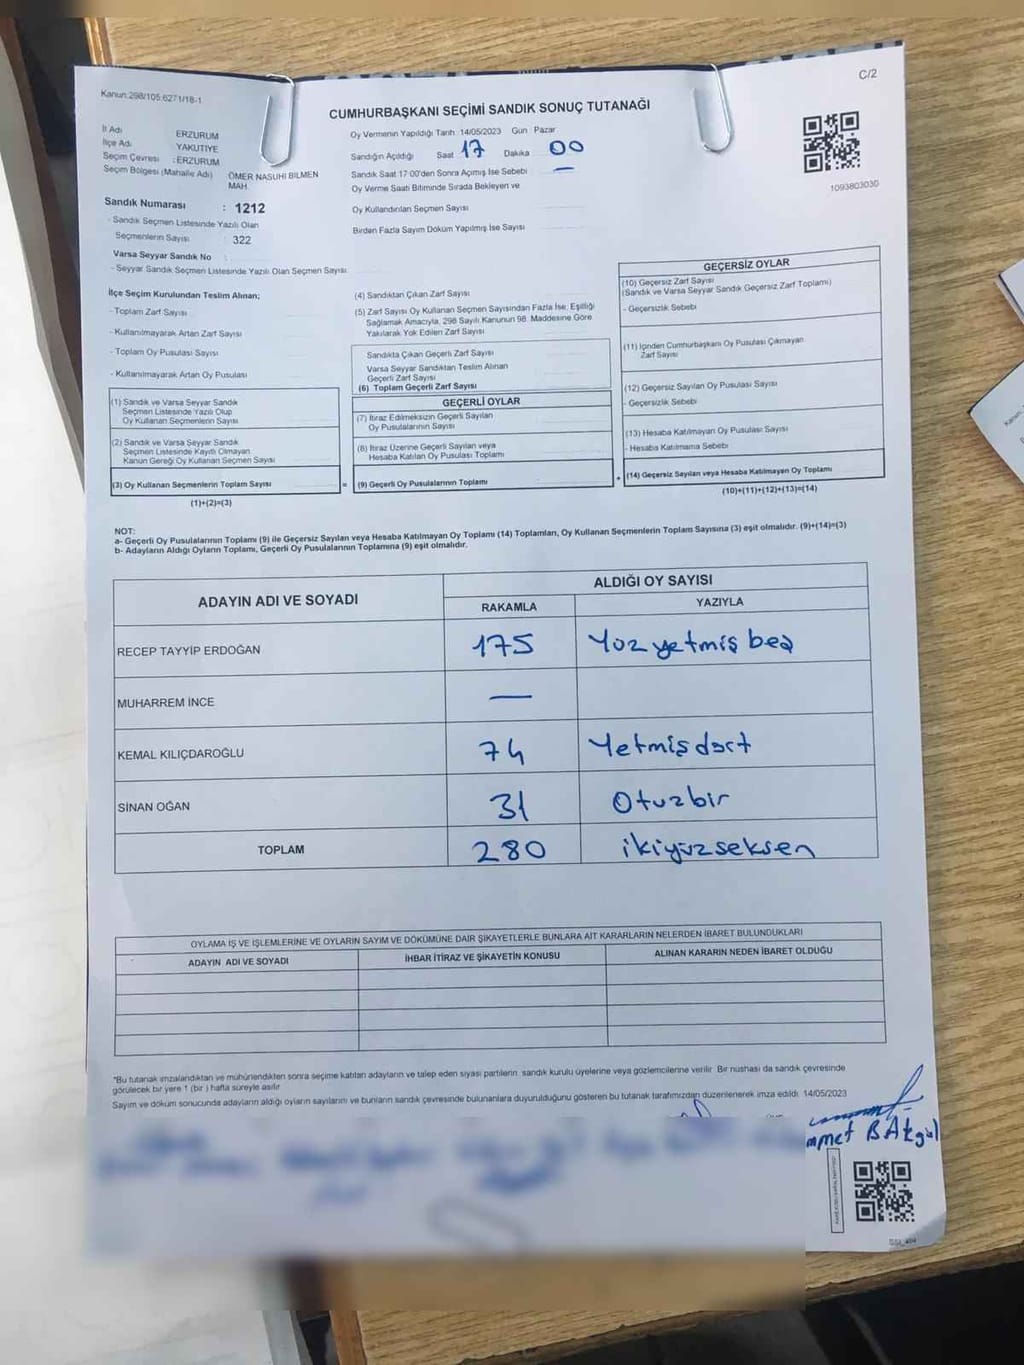 C/2
Kanun:298/105;6271/18-1
CUMHURBAŞKANI SEÇİMİ SANDIK SONUÇ TUTANAĞI
İl Adı ERZURUM
İlçe Adı YAKUTİYE
Seçim Çevresi : ERZURUM
Seçim Bölgesi (Mahalle Adı) ÖMER NASUHİ BİLMEN MAH.
Sandık Numarası : 1212
- Sandık Seçmen Listesinde Yazılı Olan
Seçmenlerin Sayısı 322
Varsa Seyyar Sandık No :
- Seyyar Sandık Seçmen Listesinde Yazılı Olan Seçmen Sayısı
Oy Vermenin Yapıldığı Tarih :14/05/2023 Gün : Pazar
Sandığın Açıldığı Saat 17 Dakika 00
Sandık Saat 17:00'den Sonra Açımış İse Sebebi —
Oy Verme Saati Bitiminde Sırada Bekleyen ve
Oy Kullandırılan Seçmen Sayısı
Birden Fazla Sayım Döküm Yapılmış İse Sayısı
1093803030
İlçe Seçim Kurulundan Teslim Alınan;
- Toplam Zarf Sayısı
- Kullanılmayarak Artan Zarf Sayısı
- Toplam Oy Pusulası Sayısı
- Kullanılmayarak Artan Oy Pusulası
(1) Sandık ve Varsa Seyyar Sandık
Seçmen Listesinde Yazılı Olup
Oy Kullanan Seçmenlerin Sayısı
(2) Sandık ve Varsa Seyyar Sandık
Seçmen Listesinde Kayıtlı Olmayan
Kanun Gereği Oy Kullanan Seçmen Sayısı
(3) Oy Kullanan Seçmenlerin Toplam Sayısı
(1)+(2)=(3)
(4) Sandıktan Çıkan Zarf Sayısı
(5) Zarf Sayısı Oy Kullanan Seçmen Sayısından Fazla İse; Eşitliği
Sağlamak Amacıyla, 298 Sayılı Kanunun 98. Maddesine Göre
Yakılarak Yok Edilen Zarf Sayısı
Sandıkta Çıkan Geçerli Zarf Sayısı
Varsa Seyyar Sandıktan Teslim Alınan
Geçerli Zarf Sayısı
(6) Toplam Geçerli Zarf Sayısı
GEÇERLİ OYLAR
(7) İtiraz Edilmeksizin Geçerli Sayılan
Oy Pusulalarının Sayısı
(8) İtiraz Üzerine Geçerli Sayılan veya
Hesaba Katılan Oy Pusulası Toplamı
= (9) Geçerli Oy Pusulalarının Toplamı
GEÇERSİZ OYLAR
(10) Geçersiz Zarf Sayısı
(Sandık ve Varsa Seyyar Sandık Geçersiz Zarf Toplamı)
- Geçersizlik Sebebi
(11) İçinden Cumhurbaşkanı Oy Pusulası Çıkmayan
Zarf Sayısı
(12) Geçersiz Sayılan Oy Pusulası Sayısı
- Geçersizlik Sebebi
(13) Hesaba Katılmayan Oy Pusulası Sayısı
- Hesaba Katılmama Sebebi
+ (14) Geçersiz Sayılan veya Hesaba Katılmayan Oy Toplamı
(10)+(11)+(12)+(13)=(14)
NOT:
a- Geçerli Oy Pusulalarının Toplamı (9) ile Geçersiz Sayılan veya Hesaba Katılmayan Oy Toplamı (14) Toplamları, Oy Kullanan Seçmenlerin Toplam Sayısına (3) eşit olmalıdır. (9)+(14)=(3)
b- Adayların Aldığı Oyların Toplamı, Geçerli Oy Pusulalarının Toplamına (9) eşit olmalıdır.
ADAYIN ADI VE SOYADI ALDIĞI OY SAYISI
RAKAMLA YAZIYLA
RECEP TAYYİP ERDOĞAN 175 Yüzyetmiş beş
MUHARREM İNCE —
KEMAL KILIÇDAROĞLU 74 Yetmişdört
SİNAN OĞAN 31 Otuzbir
TOPLAM 280 ikiyüzseksen
OYLAMA İŞ VE İŞLEMLERİNE VE OYLARIN SAYIM VE DÖKÜMÜNE DAİR ŞİKAYETLERLE BUNLARA AİT KARARLARIN NELERDEN İBARET BULUNDUKLARI
ADAYIN ADI VE SOYADI İHBAR İTİRAZ VE ŞİKAYETİN KONUSU ALINAN KARARIN NEDEN İBARET OLDUĞU
*Bu tutanak imzalandıktan ve mühürlendikten sonra seçime katılan adayların ve talep eden siyasi partilerin sandık kurulu üyelerine veya gözlemcilerine verilir. Bir nüshası da sandık çevresinde
görülecek bir yere 1 (bir ) hafta süreyle asılır
Sayım ve döküm sonucunda adayların aldığı oyların sayılarını ve bunların sandık çevresinde bulunanlara duyurulduğunu gösteren bu tutanak tarafımızdan düzenlenerek imza edildi. 14/05/2023
mmet BAkgül